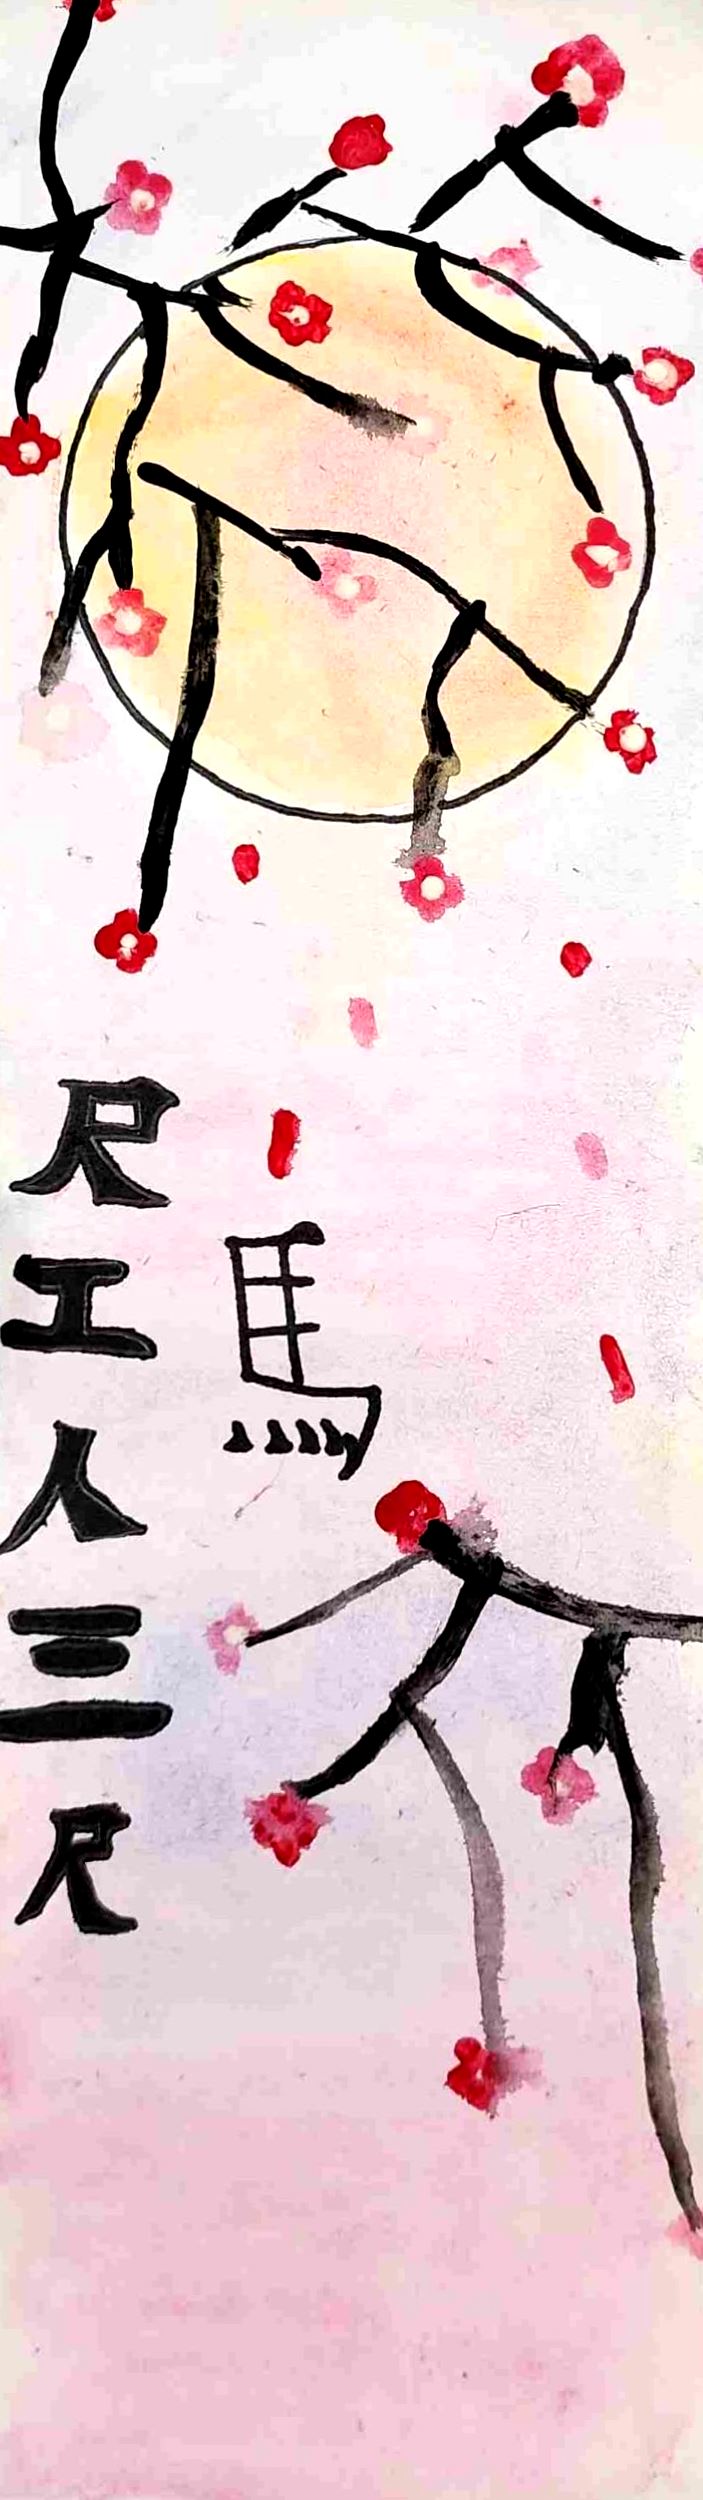 馬
尺工人三尺